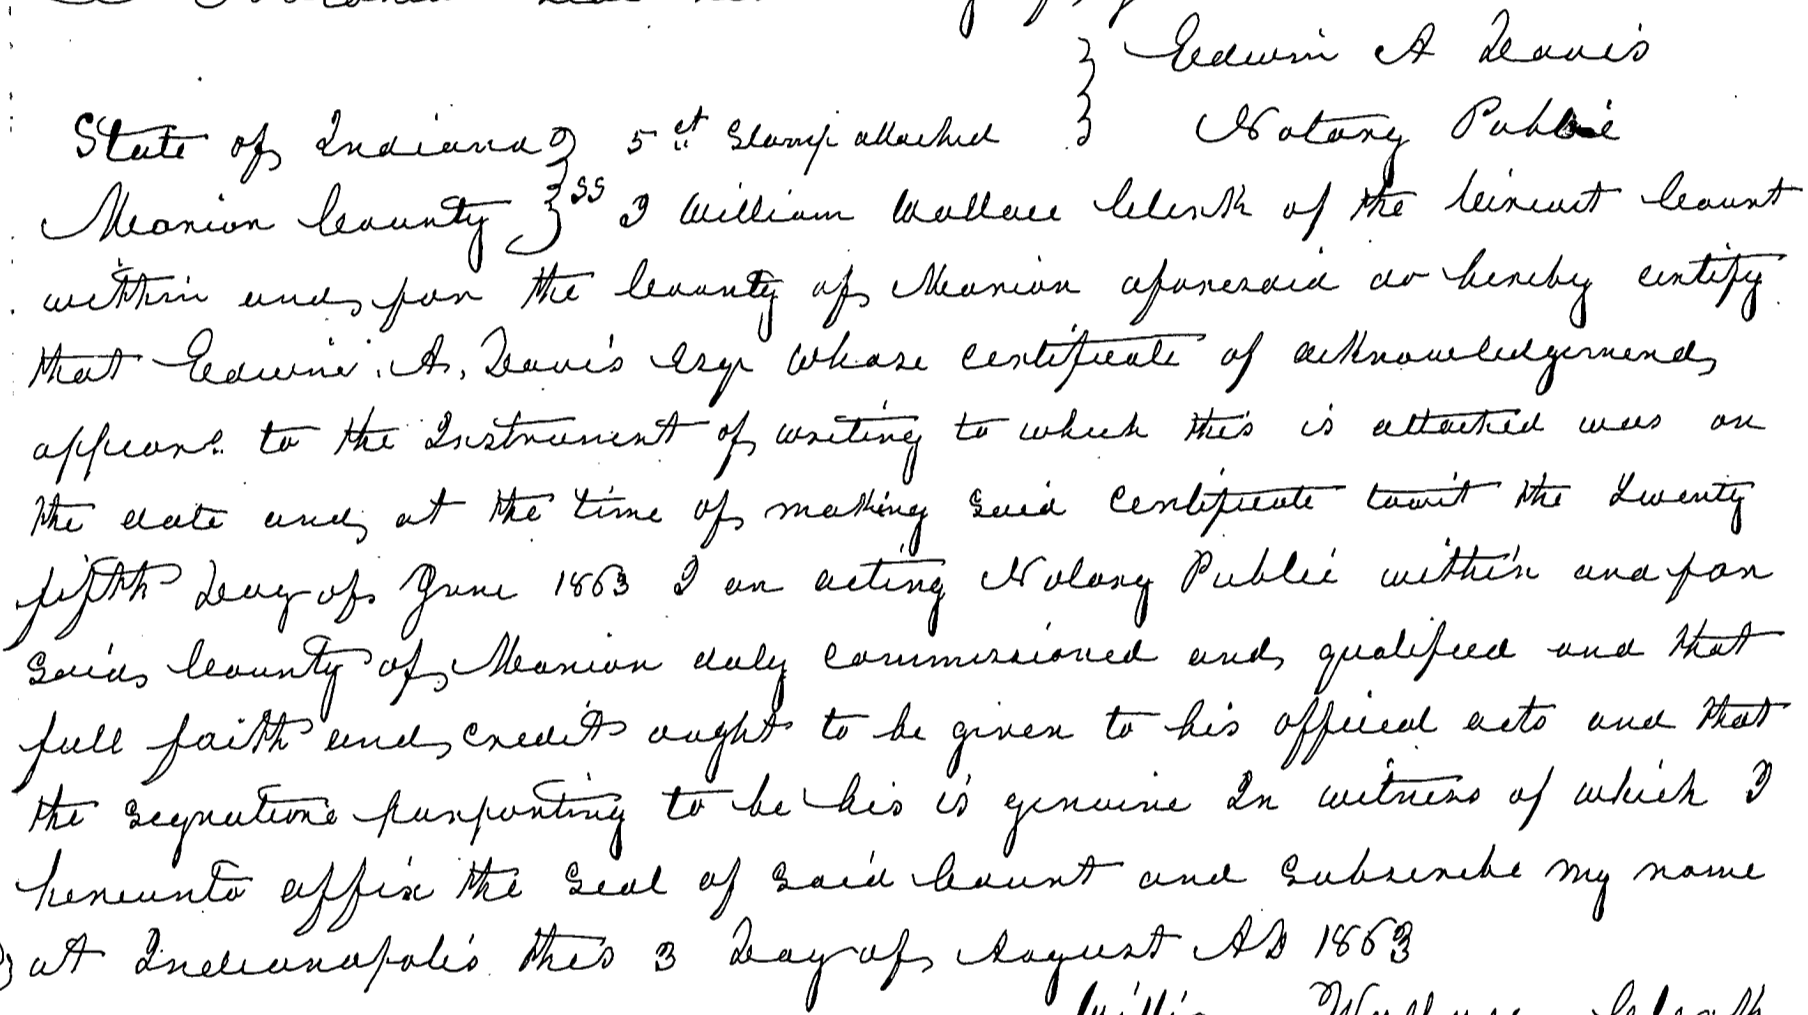 Edwin A Davis
State of Indiana } 5 ct Stamp attached } Notary Public
Marion County } SS I William Wallace Clerk of the Circuit Court
within and for the County of Marion aforesaid do hereby certify
that Edwin A. Davis Esqr whose certificate of acknowledgement
appears to the Instrument of writing to which this is attached was on
the date and at the time of making said certificate towit the Twenty
fifth Day of June 1863 I an acting Notary Public within and for
said County of Marion duly commissioned and qualified and that
full faith and credit ought to be given to his official acts and that
the signature purporting to be his is genuine In witness of which I
hereunto affix the seal of said Court and subscribe my name
at Indianapolis this 3 Day of August AD 1863
Wallace Clerk